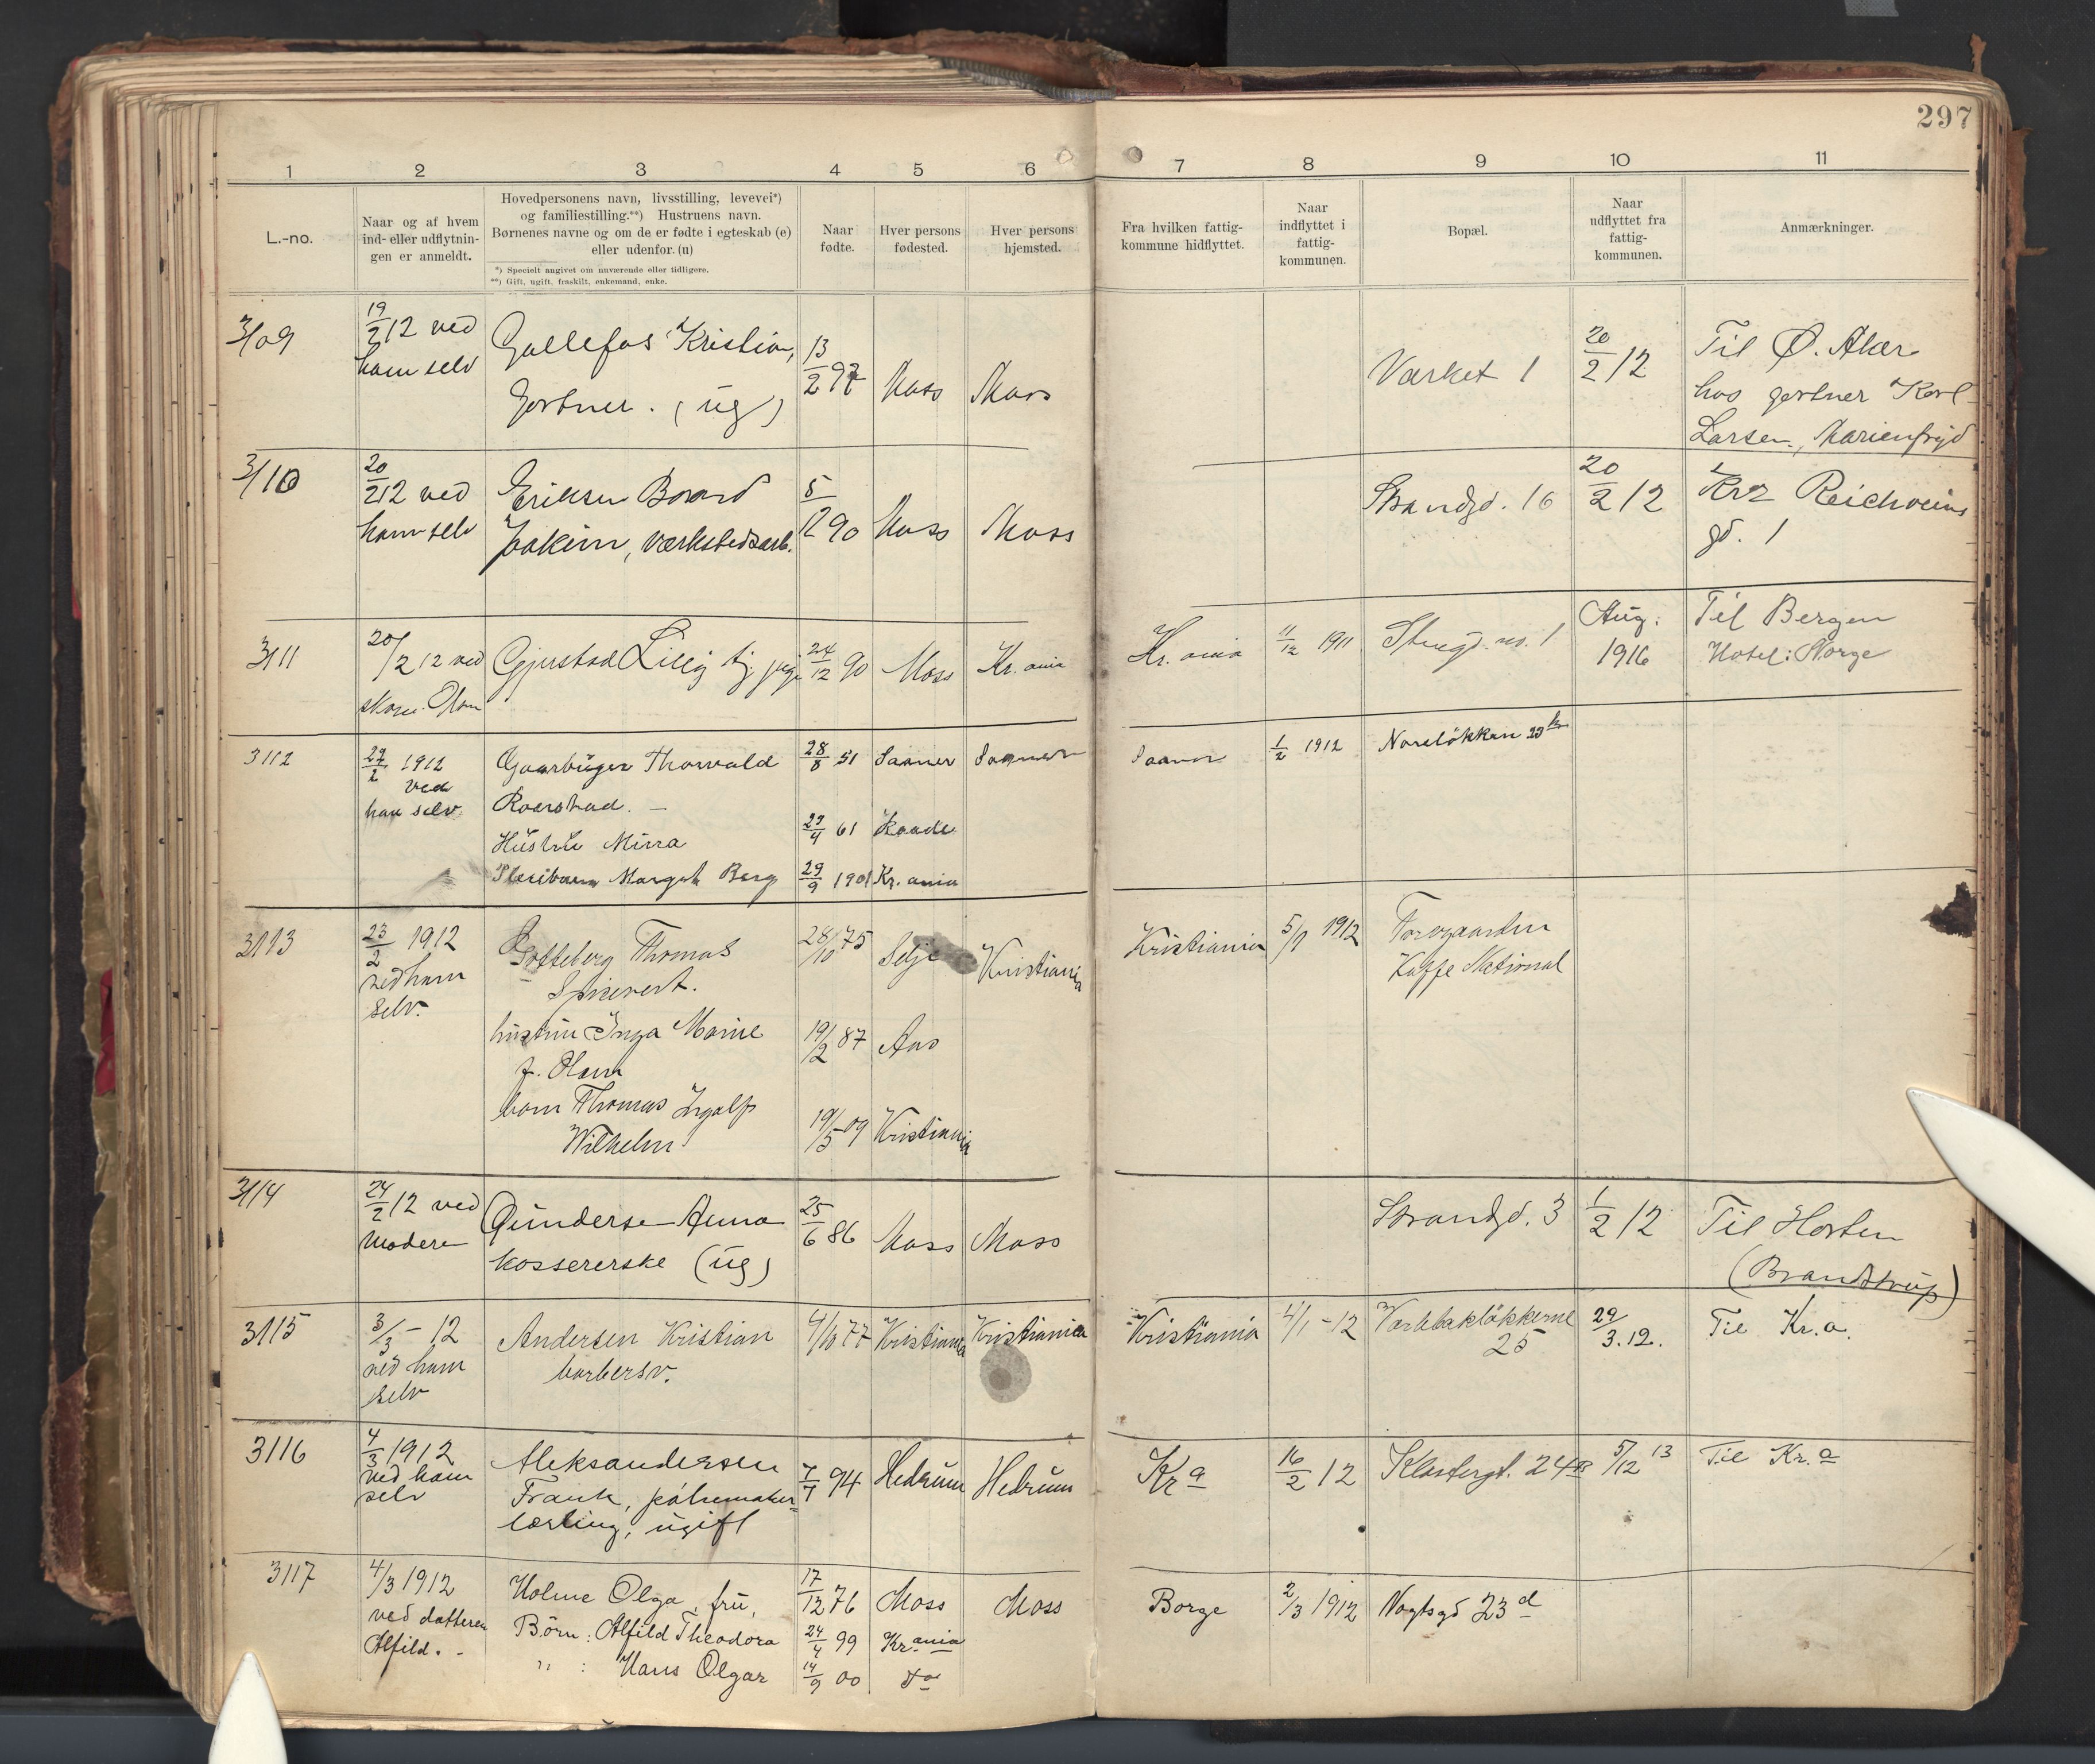 297
1 2 3 4 5 6 7 8 9 10 11
L.-no.
Naar og af hvem
ind- eller udflytnin-
gen er anmeldt.
Hovedpersonens navn, livsstilling, levevei*)
og familiestilling.**) Hustruens navn.
Børnenes navne og om de er fødte i egteskab (e)
eller udenfor. (u)
*) Specielt angivet om nuværende eller tidligere.
**) Gift, ugift, fraskilt, enkemand, enke.
Naar
fødte.
Hver persons
fødested.
Hver persons
hjemsted.
Fra hvilken fattig-
kommune hidflyttet.
Naar
indflyttet i
fattig-
kommunen.
Bopæl.
Naar
udflyttet fra
fattig-
kommunen.
Anmærkninger.
3109
19/2 12 ved
ham selv
Gullefos Kristian,
Gartner. (ug)
13/2 97
Moss
Moss
Værket 1
20/2 12
Til Ø. Aker
hos gartner Karl
Larsen, Marienfryd
3110
20/2 12 ved
ham selv
Eriksen
Joakim, værkstedsarb.
5/12 90
Moss
Moss
Strandgd. 16
20/2 12
gd. 1
3111
20/2 12 ved
Gjerstad Lilly
24/12 90
Moss
Kr.ania
Kr.ania
11/12 1911
Aug.
1916
Til Bergen
Hotel: Norge
3112
1912
ved
han selv
Gaarbruger Thorvald
28/8 51
Saaner
Saaner
Hustru
29/4 61
Raade
Pleiebarn Margit Berg
29/9 1901
Kr.ania
Saaner
1/2 1912
3113
23/2 1912
ved ham
selv.
Thomas
28/10 75
Selje
Kristiania
hustru Inga Marie
f. Olsen
19/2 87
Aas
barn Thomas Ingolf
Wilhelm
19/5 09
Kristiania
Kristiania
5/1 1912
Torvgaarden
Kaffe National
3114
24/2 12 ved
Moderen
Gundersen Anna
kassererske (ug)
25/6 86
Moss
Moss
Strandgd. 3
1/2 12
Til Horten
(Brandstrup)
3115
3/3 - 12
ved ham
selv
Andersen Kristian
barbersv.
4/10 77
Kristiania
Kristiania
Kristiania
4/1 - 12
25
29/3.12.
Til Kr.a.
3116
4/3 1912
ved ham
selv
Aleksandersen
Frank, pølsemaker-
lærling, ugift
7/7 94
Hedrum
Hedrum
Kra
16/2 12
Klostergt. 24B
5/12 13
Til Kr.a
3117
4/3 1912
ved datteren
Alfild. -
Holme Olga, frü,
17/12 76
Moss
Moss
Børn: Alfild Theodora
24/4 99
Kr.ania
" : Hans Olgar
14/9 00
do
Borge
2/3 1912
Vogtsgd 23d